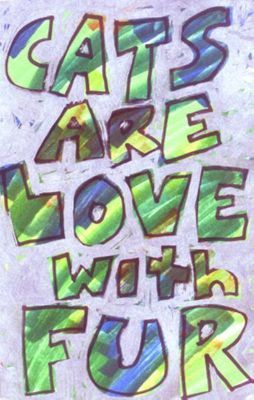 CATS
ARE
LOVE
with
FUR